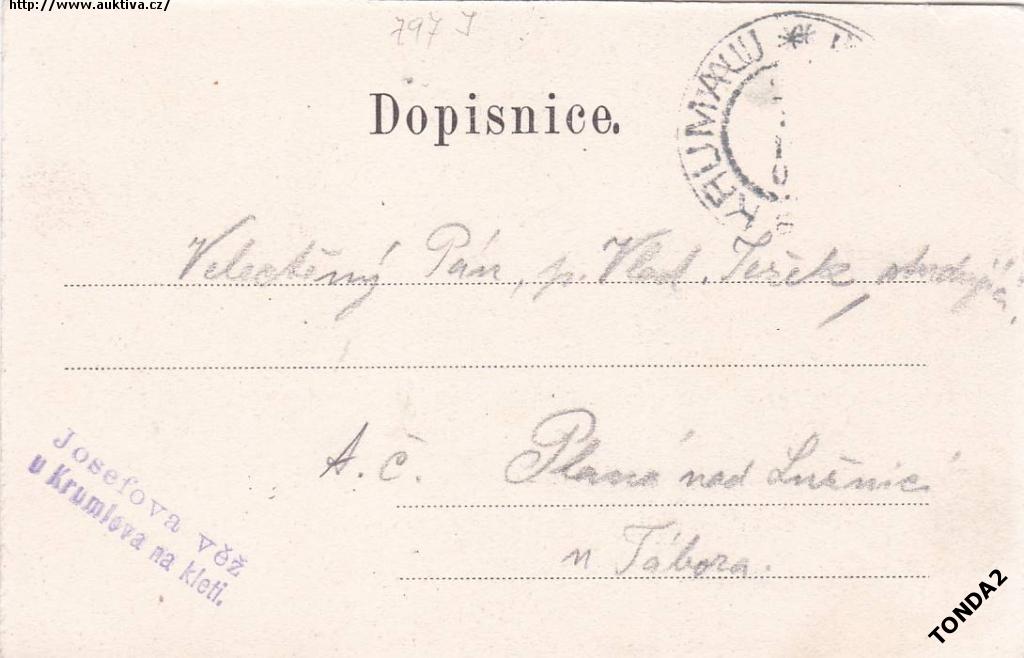 http://www.auktiva.cz/
797 I
Dopisnice.
KRUMAU
Velectěný Pán, p. Vlad. Ješek,
A. č. Planá nad Lužnicí
u Tábora.
Josefova věž
u Krumlova na kleti.
TONDA2